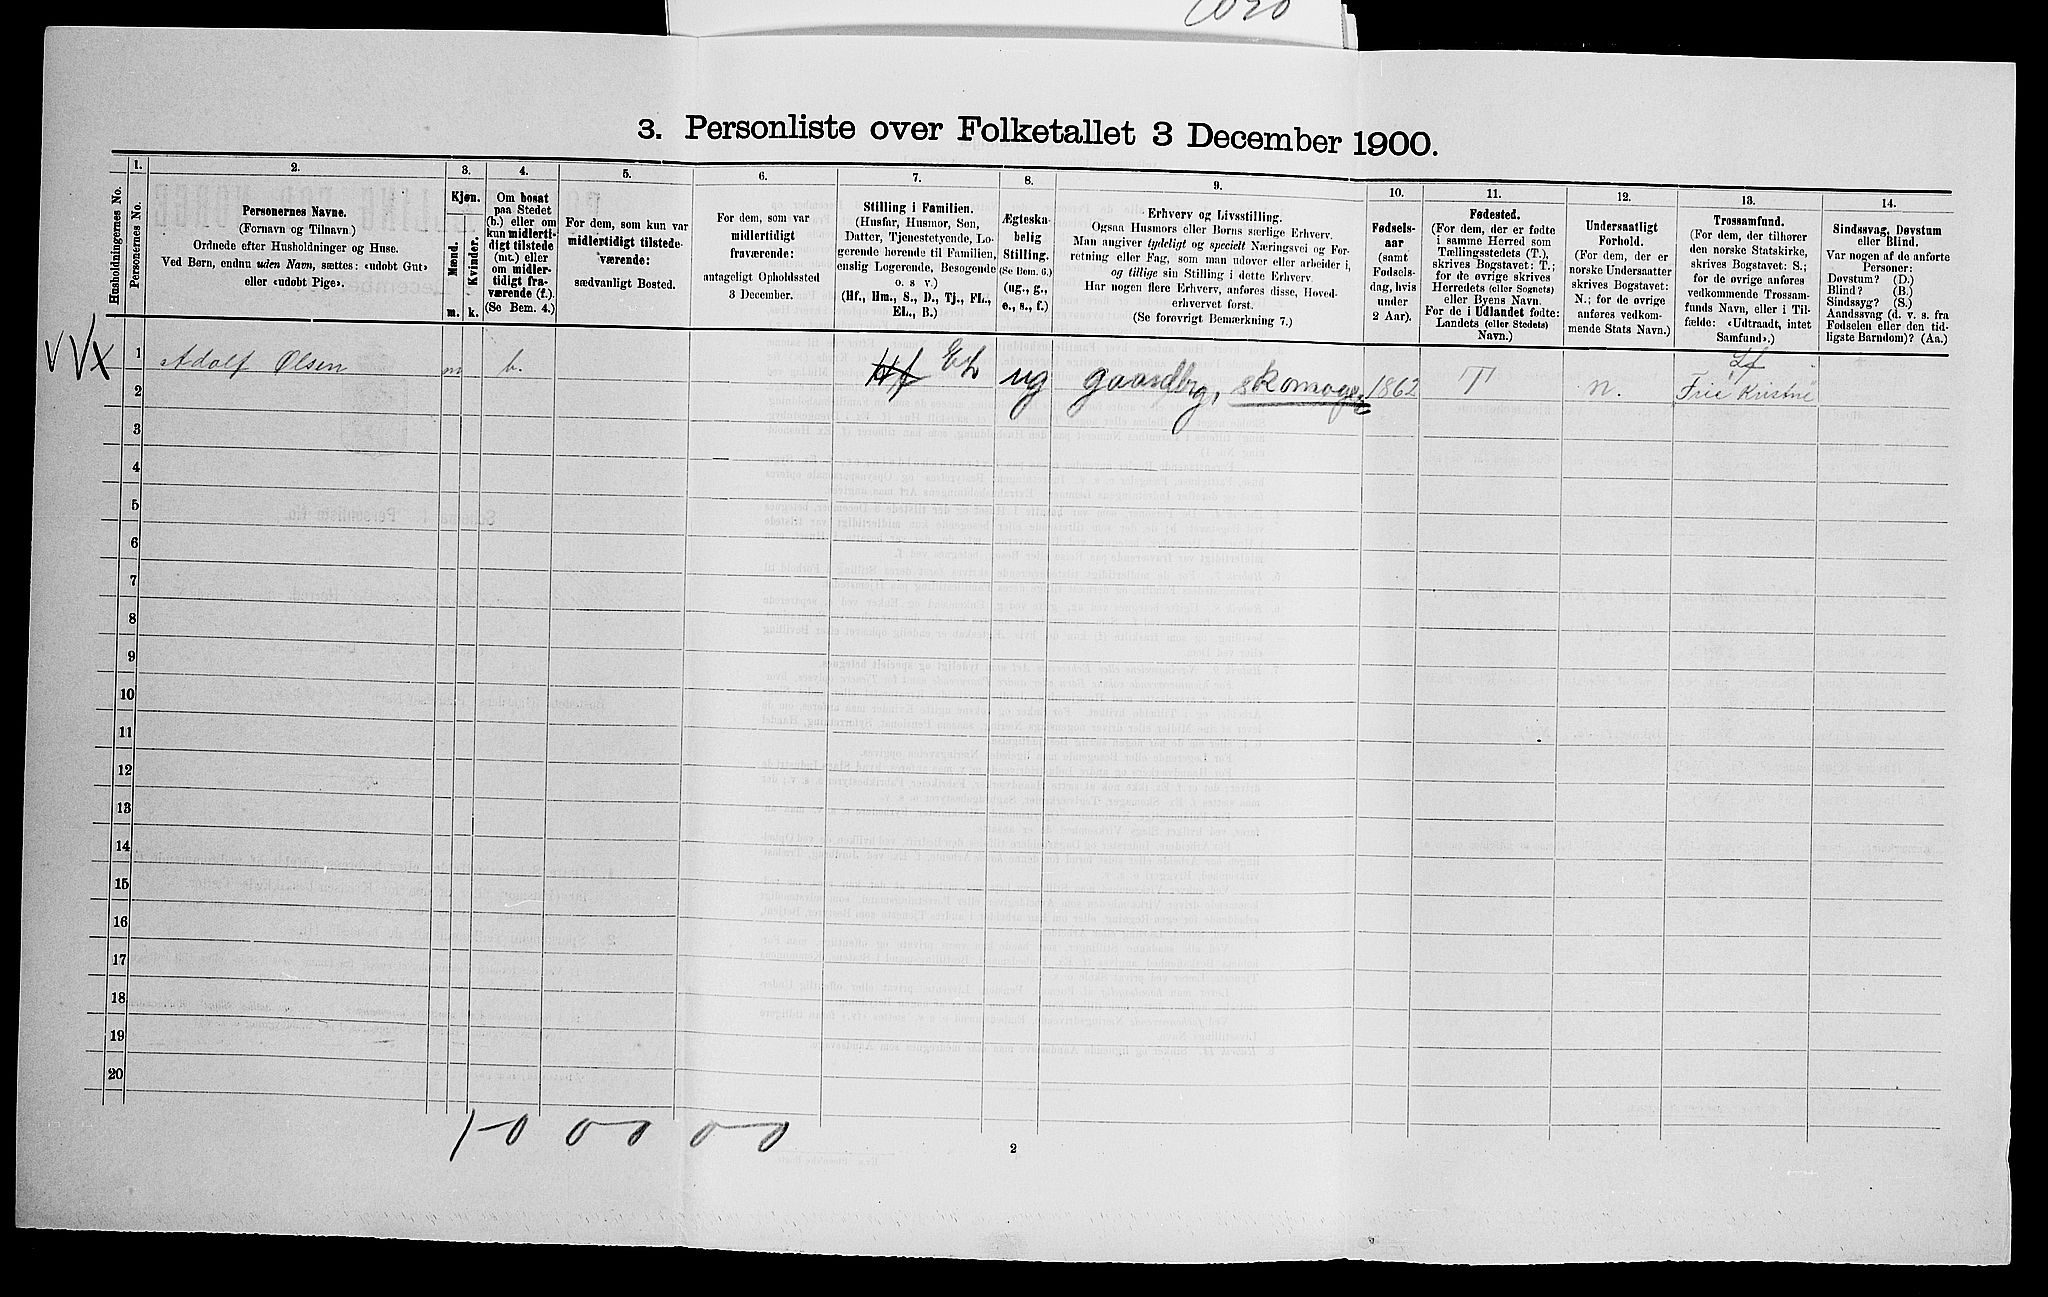 1020
3. Personliste over Folketallet 3 December 1900.
Husholdningernes No.
1.
Personernes No.
2.
Personernes Navne.
(Fornavn og Tilnavn.)
Ordnede efter Husholdninger og Huse.
Ved Børn, endnu uden Navn, sættes: «udøbt Gut»
eller «udøbt Pige».
3.
Kjøn.
Mænd.
Kvinder.
m.
k.
4.
Om bosat
paa Stedet
(b.) eller om
kun midlerti-
digt tilstede
(mt.) eller
om midler-
tidigt fra-
værende (f.).
(Se Bem. 4.)
5.
For dem, som kun var
midlertidigt tilstede-
værende:
sædvanligt Bosted.
6.
For dem, som var
midlertidigt
fraværende:
antageligt Opholdssted
3 December.
7.
Stilling i Familien.
(Husfar, Husmor, Søn,
Datter, Tjenestetyende, Lo-
gerende hørende til Familien,
enslig Logerende, Besøgende
o. s. v.)
(Hf., Hm., S., D., Tj., FL.,
EL., B.)
8.
Ægteska-
belig
Stilling.
(Se Bem. 6.)
(ug., g.,
e., s., f.)
9.
Erhverv og Livsstilling.
Ogsaa Husmors eller Børns særlige Erhverv.
Man angiver tydeligt og specielt Næringsvei og For-
retning eller Fag, som man udover eller arbeider i,
og tillige sin Stilling i dette Erhverv.
Har nogen flere Erhverv, anføres disse, Hoved-
erhvervet først.
(Se forøvrigt Bemærkning 7.)
10.
Fødsels-
aar
(samt
Fødsels-
dag, hvis
under
2 Aar).
11.
Fødested.
(For dem, der er fødte
i samme Herred som
Tællingsstedets (T.),
skrives Bogstavet: T.;
for de øvrige skrives
Herredets (eller Sognets)
eller Byens Navn.
For de i Udlandet fødte:
Landets (eller Stedets)
Navn.)
12.
Undersaatligt
Forhold.
(For dem, der er
norske Undersaatter
skrives Bogstavet:
N.; for de øvrige
anføres vedkom-
mende Stats Navn.)
13.
Trossamfund.
(For dem, der tilhører
den norske Statskirke,
skrives Bogstavet: S.;
for de øvrige anføres
vedkommende Trossam-
funds Navn, eller i Til-
fælde: «Udtraadt, intet
Samfund».)
14.
Sindssvag, Døvstum
eller Blind.
Var nogen af de anførte
Personer:
Døvstum? (D.)
Blind? (B.)
Sindssyg? (S.)
Aandssvag (d. v. s. fra
Fødselen eller den tid-
ligste Barndom)? (Aa.)
VVX 1 Adolf Olsen m b. Hf EL ug gaardbrg, skomager 1862 T N. Frie Kristne
2
3
4
5
6
7
8
9
10
11
12
13
14
15
16
17
18
19
20
1-0 0 0 0-0
2